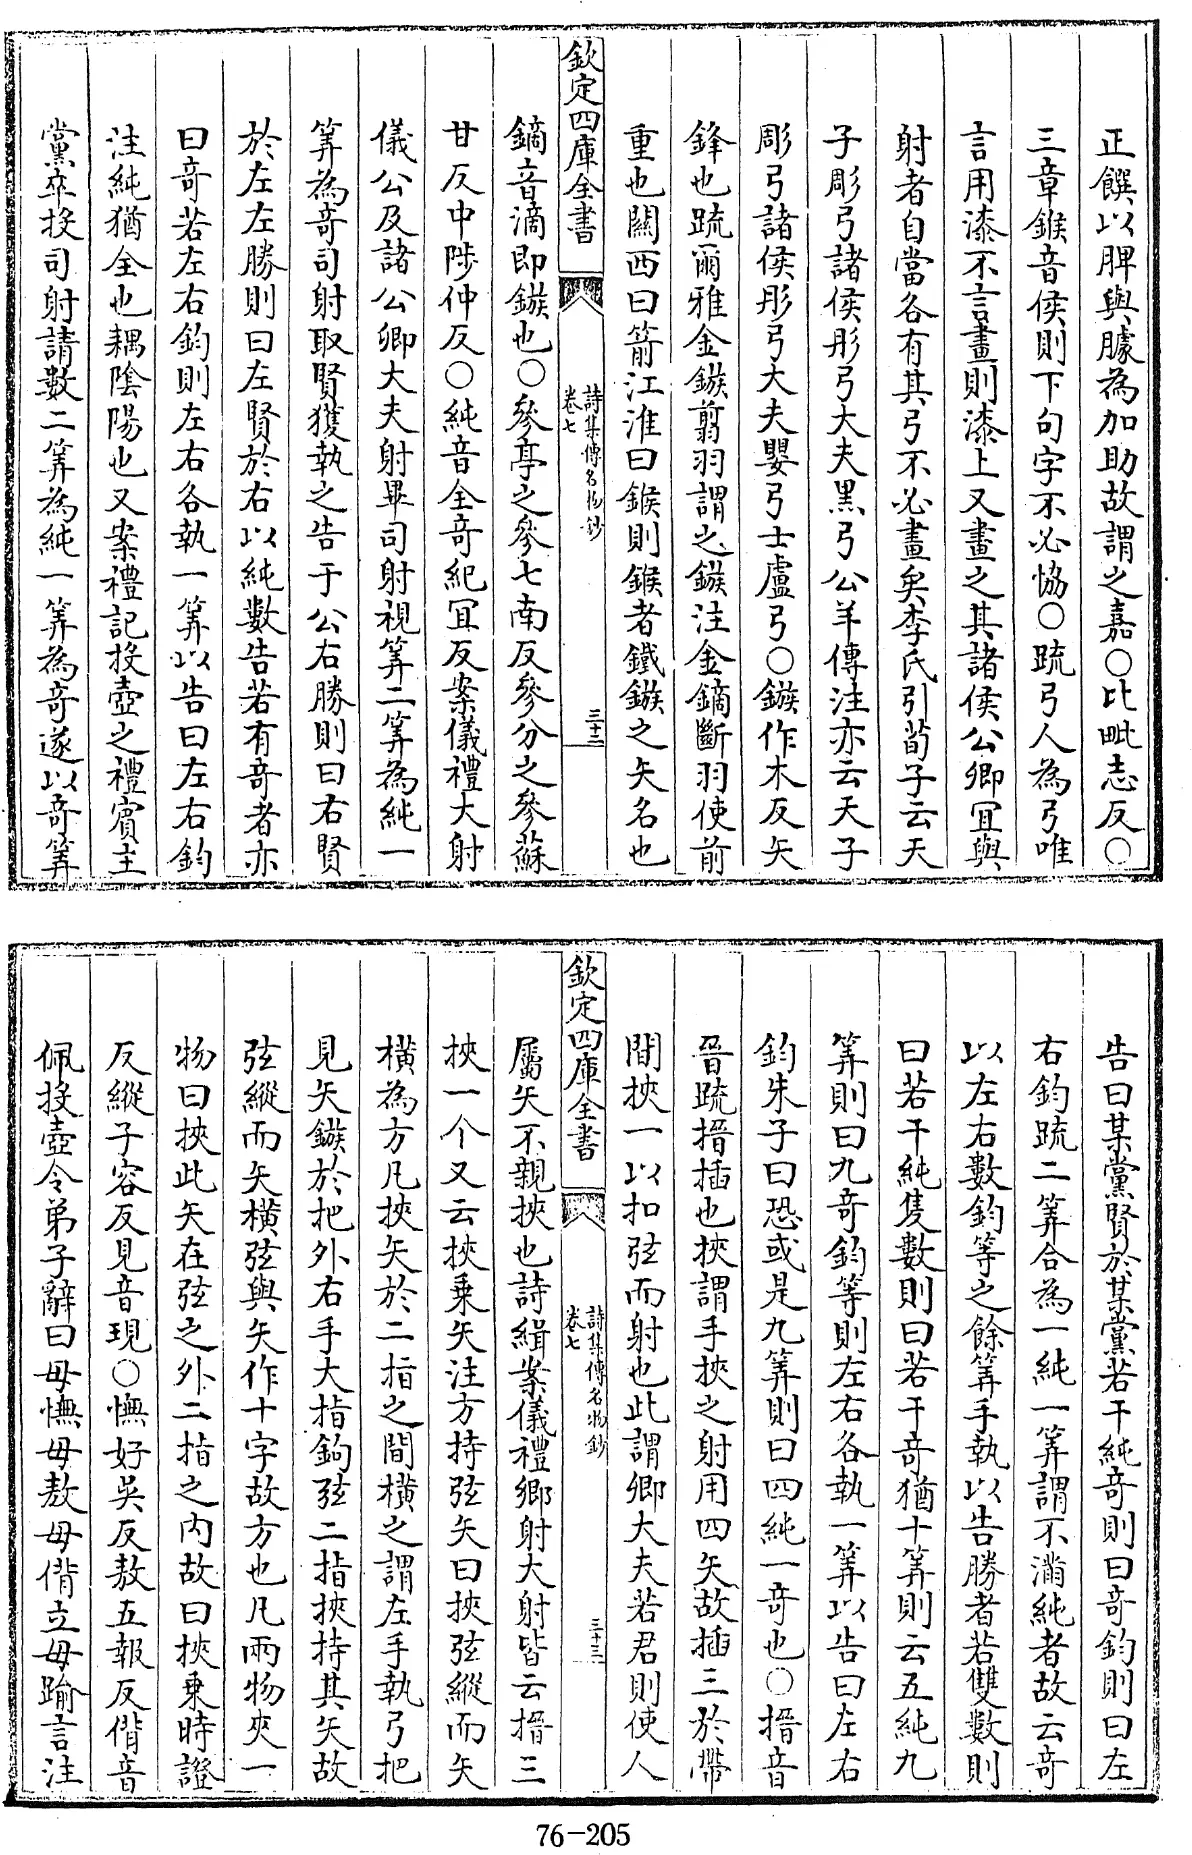 正饌以脾與臄為加助故謂之嘉○比毗志反○
三章鍭音侯則下句字不必恊○疏弓人為弓唯
言用漆不言畫則漆上又畫之其諸侯公卿冝與
射者自當各有其弓不必畫矣李氏引荀子云天
子彫弓諸侯彤弓大夫黒弓公羊傳注亦云天子
彫弓諸侯彤弓大夫嬰弓士盧弓○鏃作木反矢
鋒也疏爾雅金鏃翦羽謂之鍭注金鏑斷羽使前
重也關西曰箭江淮曰鍭則鍭者鐵鏃之矢名也
欽定四庫全書
詩集傳名物鈔
卷七
三十二
鏑音滴即鏃也○參亭之參七南反參分之參蘇
甘反中陟仲反○純音全奇紀冝反案儀禮大射
儀公及諸公卿大夫射畢司射視筭二筭為純一
筭為奇司射取賢獲執之告于公右勝則曰右賢
於左左勝則曰左賢於右以純數告若有奇者亦
曰奇若左右鈞則左右各執一筭以告曰左右鈞
注純猶全也耦陰陽也又案禮記投壺之禮賓主
黨卒投司射請數二筭為純一筭為奇遂以奇筭
告曰某黨賢於某黨若干純奇則曰奇鈞則曰左
右鈞疏二筭合為一純一筭謂不滿純者故云奇
以左右數鈞等之餘筭手執以告勝者若雙數則
曰若干純隻數則曰若干奇猶十筭則云五純九
筭則曰九奇鈞等則左右各執一筭以告曰左右
鈞朱子曰恐或是九筭則曰四純一奇也○搢音
晉疏搢插也挾謂手挾之射用四矢故插三於帶
間挾一以扣弦而射也此謂卿大夫若君則使人
欽定四庫全書
詩集傳名物鈔
卷七
三十三
屬矢不親挾也詩緝案儀禮鄉射大射皆云搢三
挾一个又云挾乗矢注方持弦矢曰挾弦縱而矢
橫為方凡挾矢於二指之間橫之謂左手執弓把
見矢鏃於把外右手大指鈎弦二指挾持其矢故
弦縱而矢橫弦與矢作十字故方也凡兩物夾一
物曰挾此矢在弦之外二指之内故曰挾乗時證
反縱子容反見音現○憮好吳反敖五報反偝音
佩投壺令弟子辭曰毋憮毋敖毋偝立毋踰言注
76-205